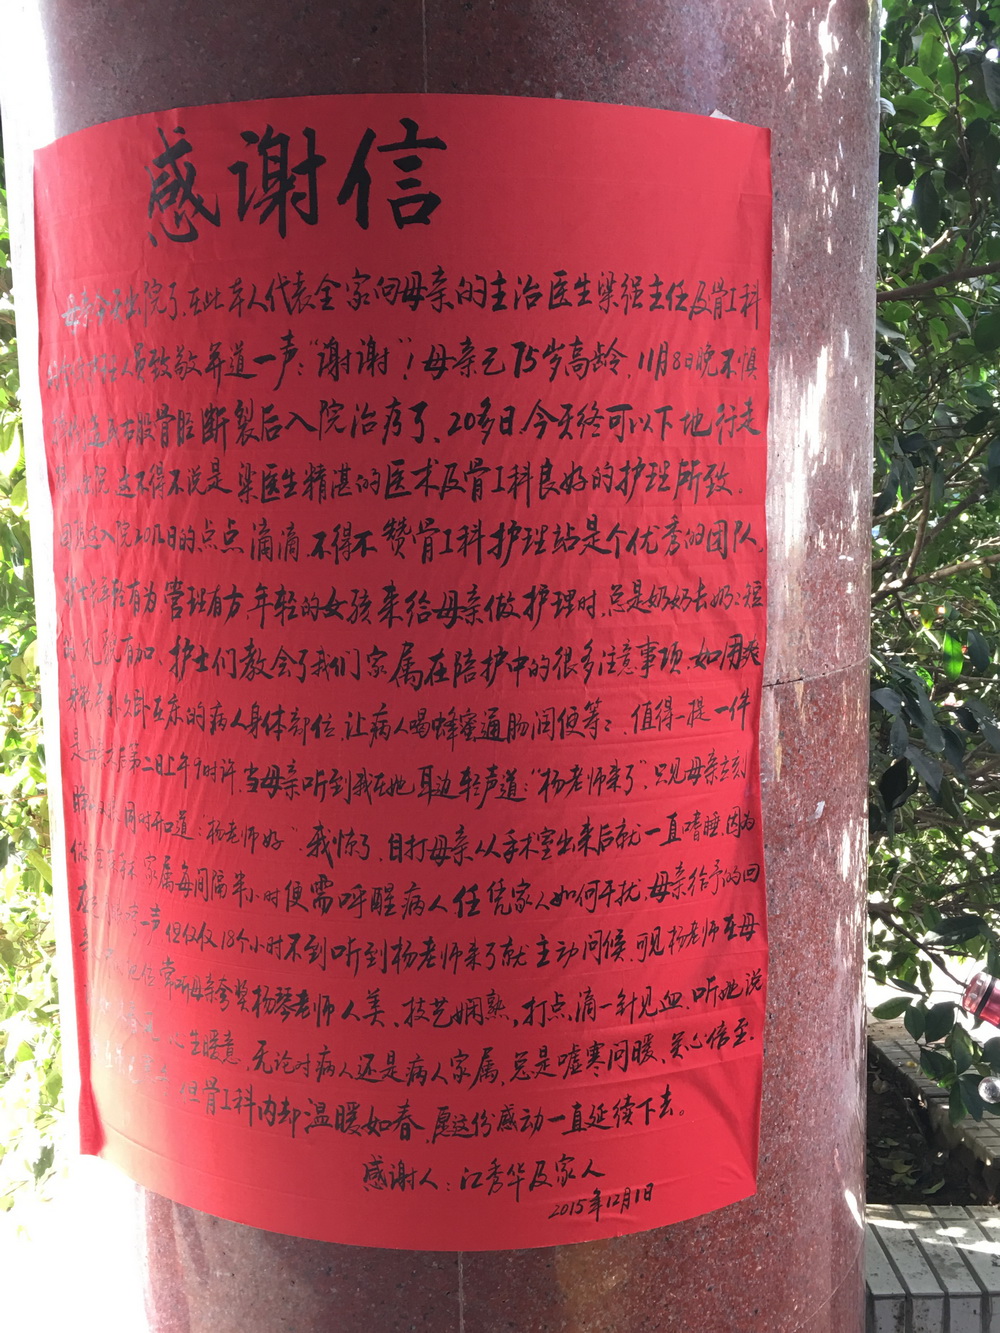 感谢信
母亲今天出院了,在此本人代表全家向母亲的主治医生梁强主任及骨I科
人员致敬并道一声:"谢谢"!母亲已75岁高龄,11月8日晚不慎
造成右股骨胫断裂后入院治疗了、20多日,今天终可以下地行走
院,这不得不说是梁医生精湛的医术及骨I科良好的护理所致。
入院20几日的点点滴滴,不得不赞骨I科护理站是个优秀的团队,
年轻有为,管理有方,年轻的女孩来给母亲做护理时,总是奶奶长奶:短
的,礼貌有加、护士们教会了我们家属在陪护中的很多注意事项,如用爽
久卧在床的病人身体部位,让病人喝蜂蜜通肠润便等:,值得一提一件
是母亲第二日上午9时许,当母亲听到我在她耳边轻声道:"杨老师来了",只见母亲立刻
同时开口道:"杨老师好",我惊了,自打母亲从手术室出来后就一直嗜睡,因为
做手术,家属每间隔半小时便需呼醒病人,任凭家人如何干扰,母亲给予的回
一声,但仅仅18个小时不到,听到杨老师来了就主动问候,可见杨老师在母
常听母亲夸奖杨琴老师人美、技艺娴熟,打点滴一针见血,听她说
心生暖意,无论对病人还是病人家属,总是嘘寒问暖、关心倍至.
但骨I科内却温暖如春,愿这份感动一直延续下去。
感谢人:江秀华及家人
2015年12月1日